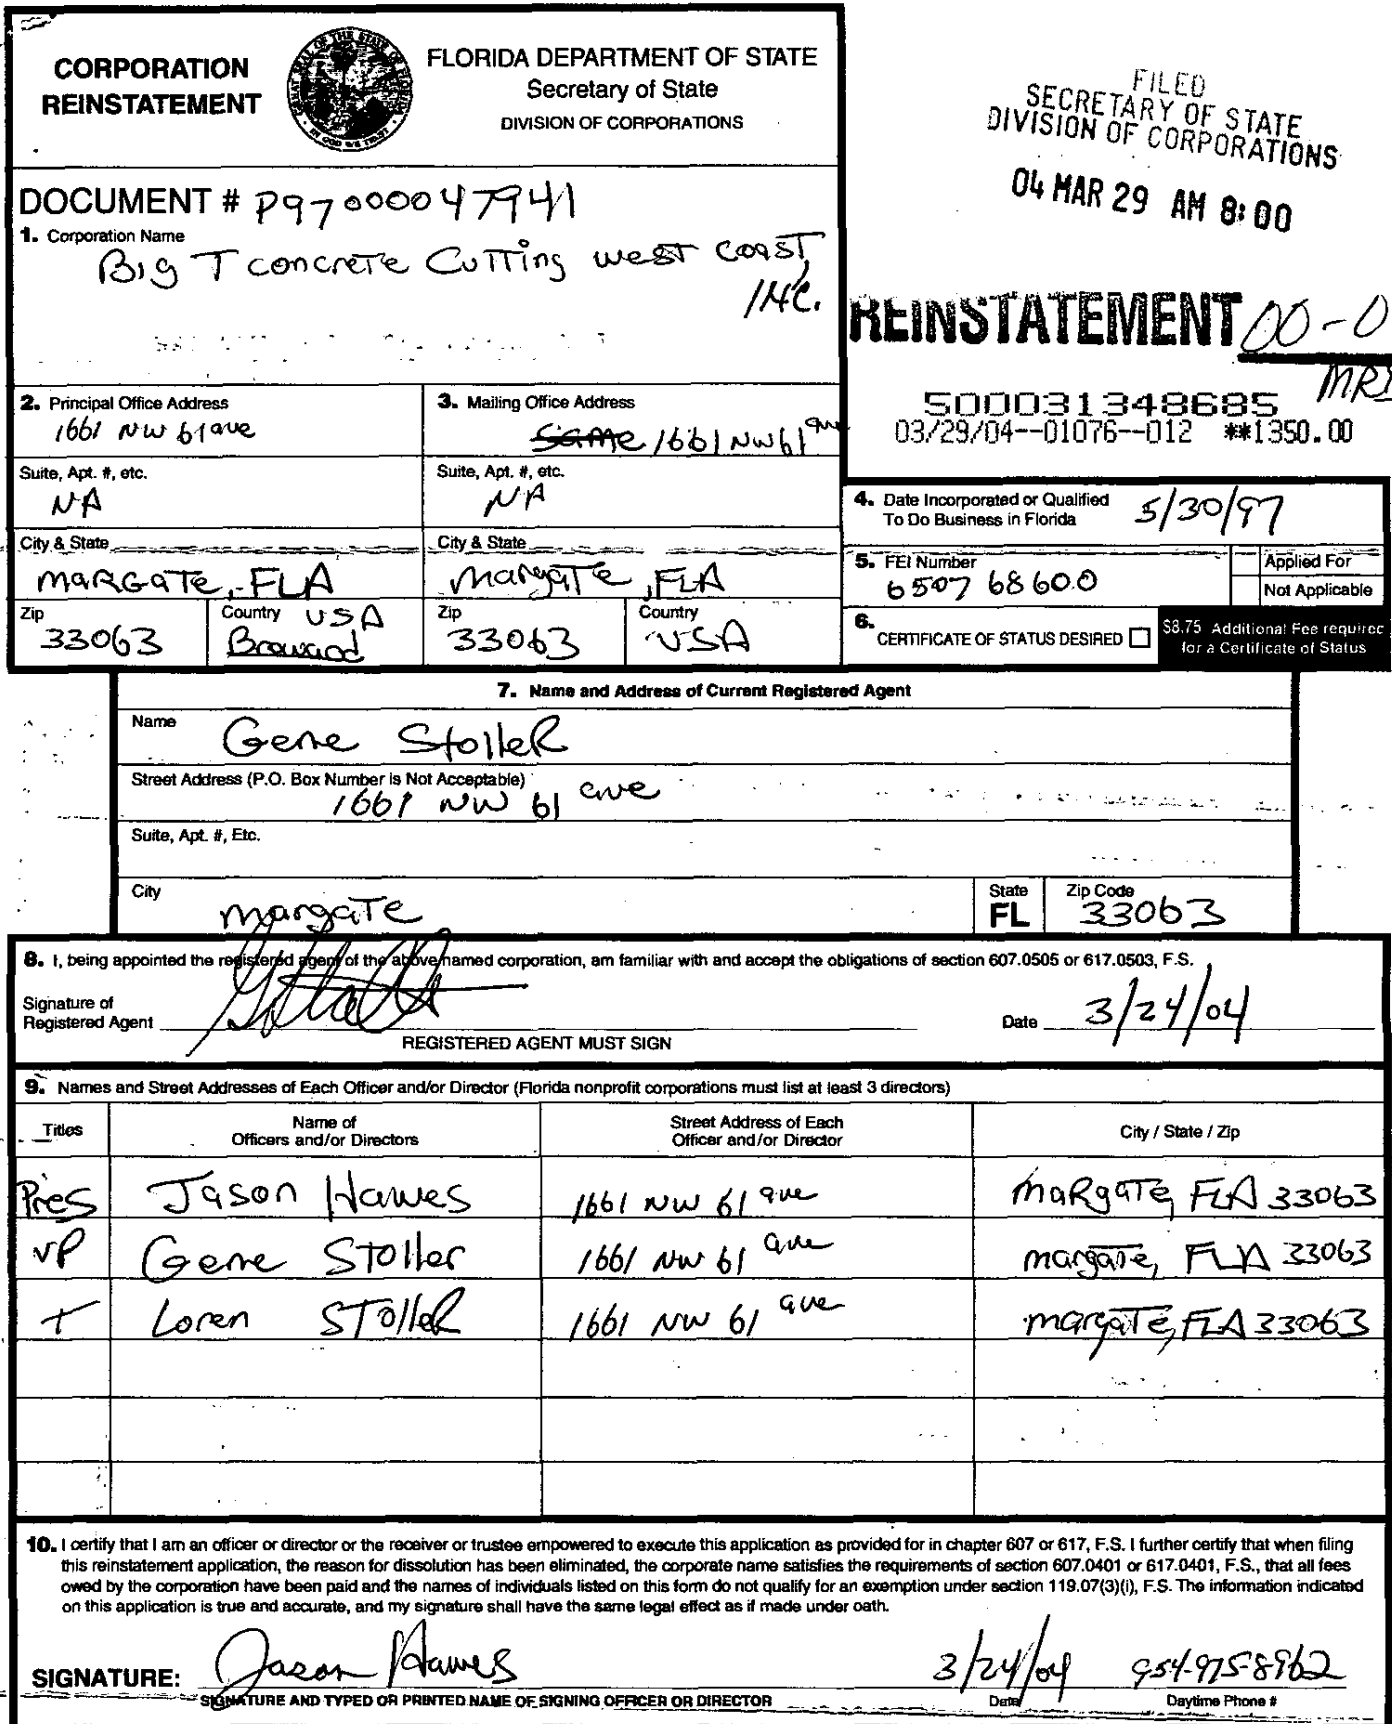 CORPORATION
REINSTATEMENT
FLORIDA DEPARTMENT OF STATE
Secretary of State
DIVISION OF CORPORATIONS
FILED
SECRETARY OF STATE
DIVISION OF CORPORATIONS
04 MAR 29 AM 8:00
DOCUMENT # P97000047941
1. Corporation Name
Big T concrete Cutting west coast,
INC.
REINSTATEMENT 00-0
500031348685
03/29/04--01076--012 **1350.00
2. Principal Office Address
1661 NW 61 ave
3. Mailing Office Address
Same 1661 NW 61 ave
Suite, Apt. #, etc.
NA
Suite, Apt. #, etc.
NA
City & State
MARGATE, FLA
City & State
margate, FLA
Zip
33063
Country USA
Broward
Zip
33063
Country
USA
4. Date Incorporated or Qualified
To Do Business in Florida 5/30/97
5. FEI Number
650768600
Applied For
Not Applicable
6. CERTIFICATE OF STATUS DESIRED
$8.75 Additional Fee required
for a Certificate of Status
7. Name and Address of Current Registered Agent
Name
Gene Stoller
Street Address (P.O. Box Number is Not Acceptable)
1661 NW 61 ave
Suite, Apt. #, Etc.
City
margate
State
FL
Zip Code
33063
8. I, being appointed the registered agent of the above named corporation, am familiar with and accept the obligations of section 607.0505 or 617.0503, F.S.
Signature of
Registered Agent
Date 3/24/04
REGISTERED AGENT MUST SIGN
9. Names and Street Addresses of Each Officer and/or Director (Florida nonprofit corporations must list at least 3 directors)
Titles
Name of
Officers and/or Directors
Street Address of Each
Officer and/or Director
City / State / Zip
Pres Jason Hawes 1661 NW 61 ave margate, FLA 33063
VP Gene Stoller 1661 NW 61 ave margate, FLA 33063
T Loren Stoller 1661 NW 61 ave margate, FLA 33063
10. I certify that I am an officer or director or the receiver or trustee empowered to execute this application as provided for in chapter 607 or 617, F.S. I further certify that when filing
this reinstatement application, the reason for dissolution has been eliminated, the corporate name satisfies the requirements of section 607.0401 or 617.0401, F.S., that all fees
owed by the corporation have been paid and the names of individuals listed on this form do not qualify for an exemption under section 119.07(3)(i), F.S. The information indicated
on this application is true and accurate, and my signature shall have the same legal effect as if made under oath.
SIGNATURE: Jason Hawes 3/24/04 954-975-8962
SIGNATURE AND TYPED OR PRINTED NAME OF SIGNING OFFICER OR DIRECTOR
Date
Daytime Phone #